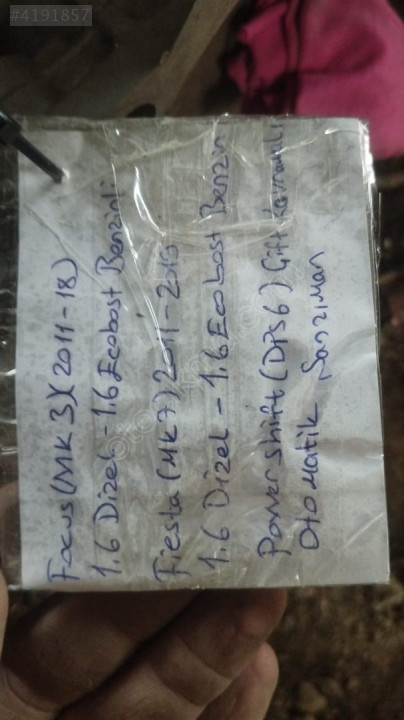 #4191857
Focus (MK3)(2011-18)
1.6 Dizel - 1.6 Ecobost Benzinli
Fiesta (MK7) 2011-2013
1.6 Dizel - 1.6 Ecobost Benzin
Powershift (DPS6) Çift Kavramalı
Otomatik Şanzıman